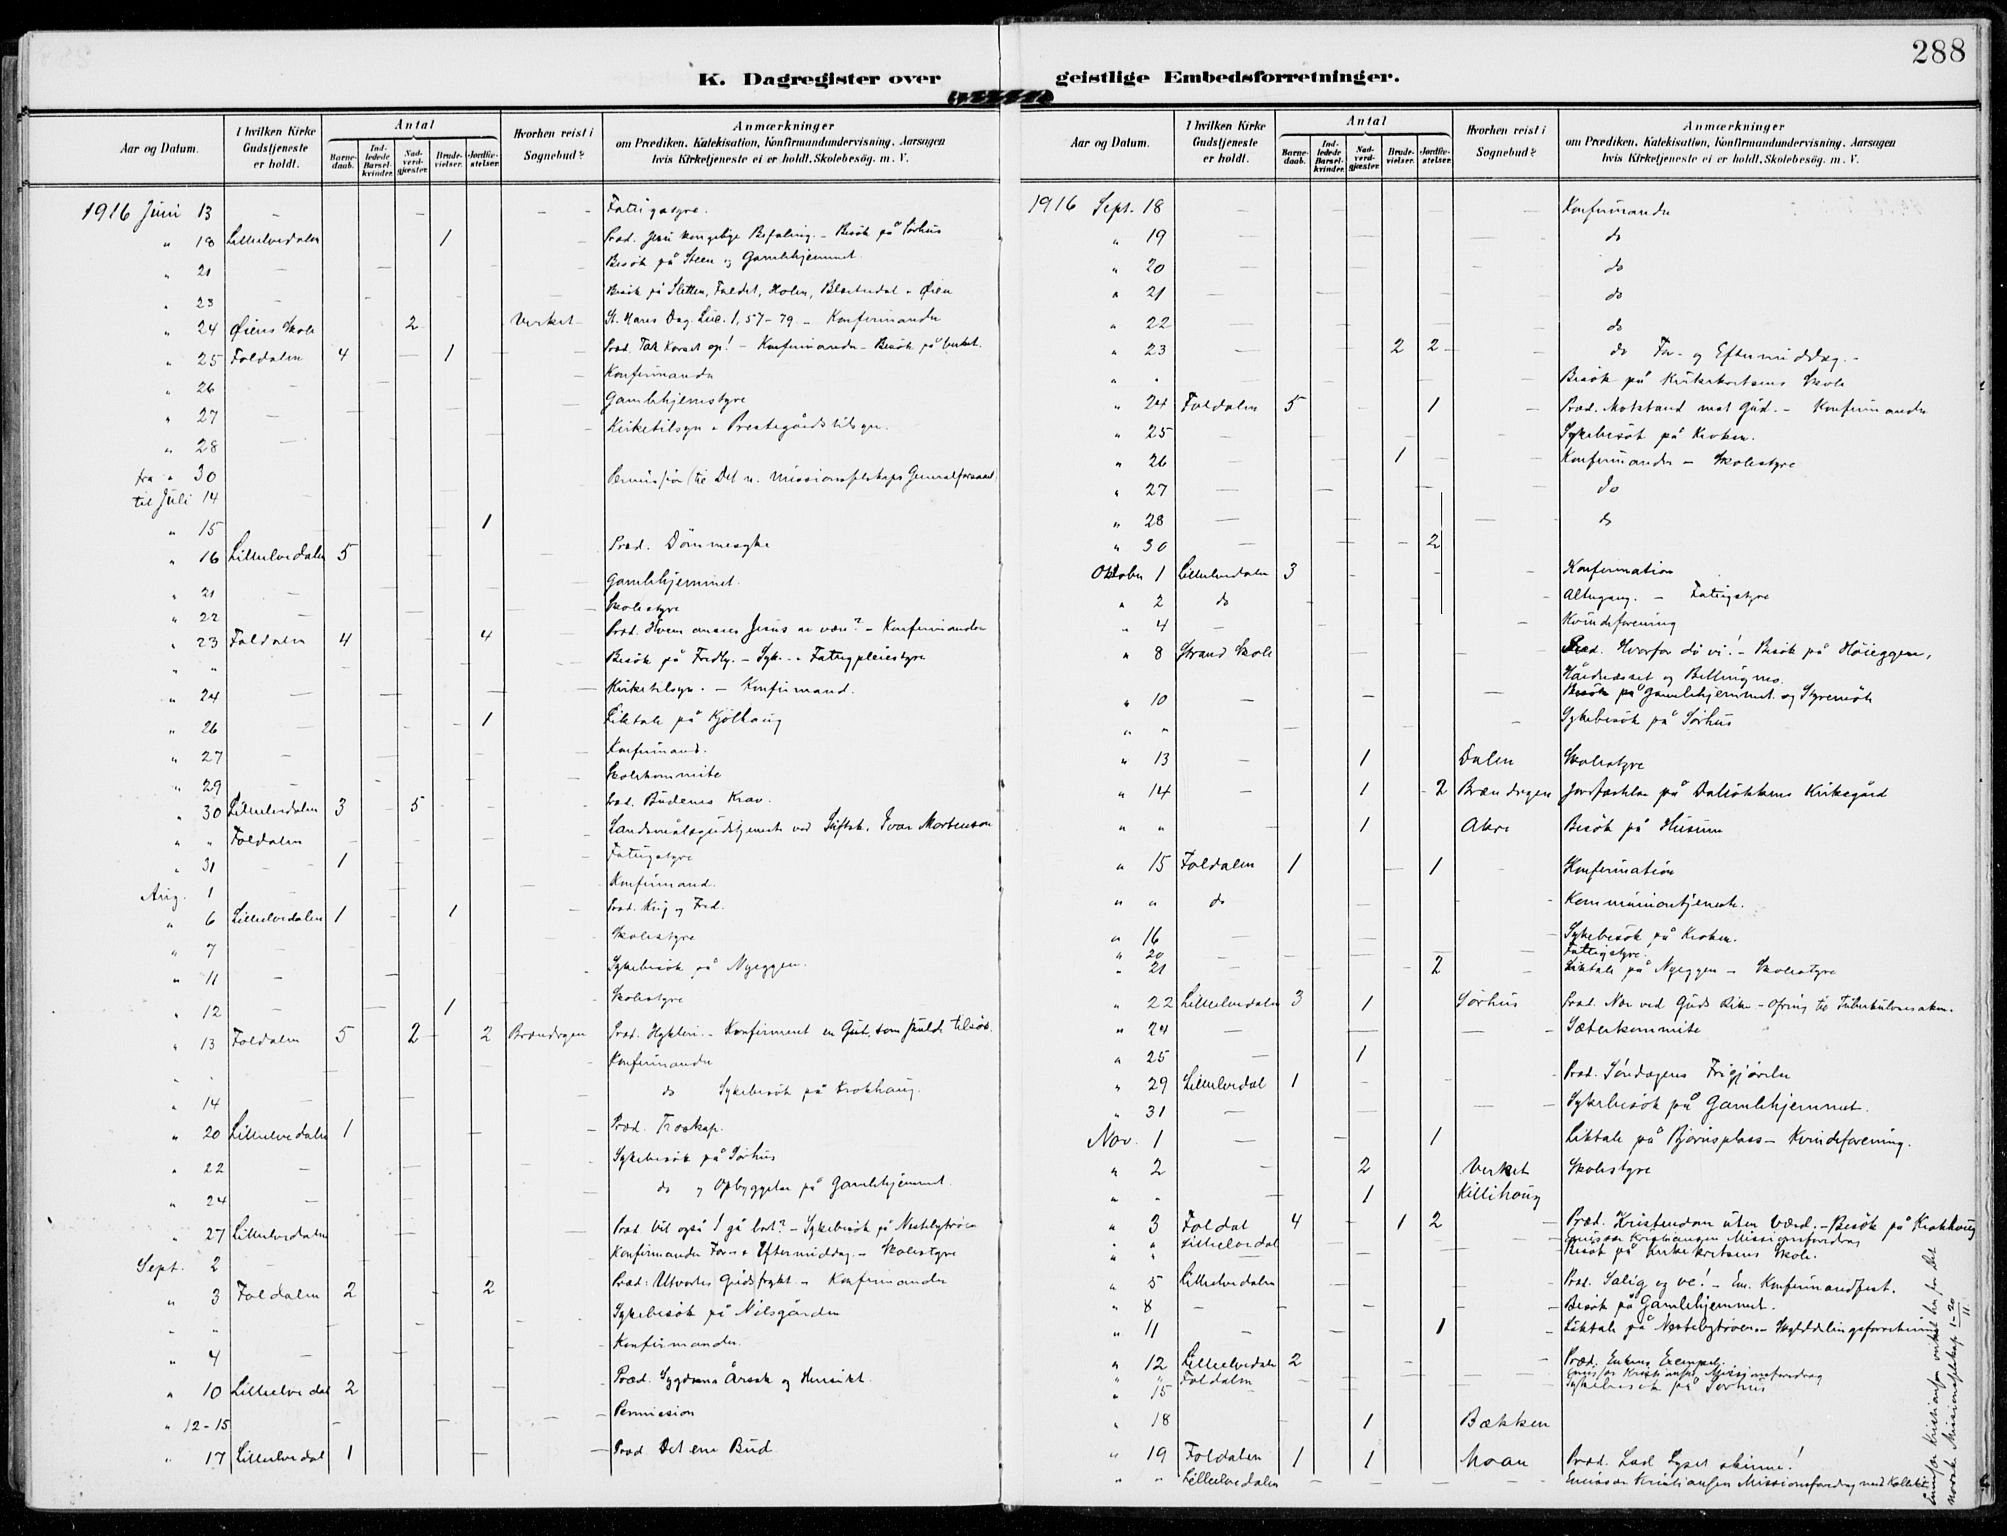 288
K. Dagregister over geistlige Embedsforretninger.
Aar og Datum.
I hvilken Kirke Gudstjeneste er holdt.
Antal
Barnedaab.
Indledede Barselkvinder.
Nadverdgjæster.
Brudevielser.
Jordfæstelser.
Hvorhen reist i Sognebud?
Anmærkninger
om Prædiken, Katekisation, Konfirmandundervisning, Aarsagen
hvis Kirketjeneste ei er holdt, Skolebesøg. m. V.
1916 Juni 13 - - - Fattigstyre.
" 18 Lillelvedalen 1 - Præd. Jesu kongelige Befaling. - Besøk på Sørhus
" 21 - - - Besøk på Steen og Gamlehjemmet.
" 23 - - - Besøk på Sletten, Foldet, Holen, Øien
" 24 Øiens Skole 2 Verket St. Hans Dag Luc. 1, 57-79 - Konfirmander
" 25 Foldalen 4 - 1 - Præd. Tak Korset op! - Konfirmander - Besøk på Verket.
" 26 - - - Konfirmander
" 27 - - - Gamlehjemstyre
" 28 - - - Kirketilsyn - Prestegårdstilsyn.
fra " 30
til Juli 14 - Permission (til Det n. Missionsselskaps Generalforsaml.)
" 15 - 1
" 16 Lillelvedalen 5 - Præd. Dømmesyke
" 21 - - - Gamlehjemmet.
" 22 - - - Skolestyre
" 23 Foldalen 4 - 4 - Præd. Hvem anser Jesus at være? - Konfirmander
" " - - - Besøk på Fredly. - Fattigpleiestyre
" 24 - - - Kirketilsyn. - Konfirmand.
" 26 - 1 - Liktale på Kjølhaug
" 27 - - - Konfirmand.
" 29 - - - Skolekommite
" 30 Lillelvedalen 3 - 5 - Præd. Budenes Krav.
" " Foldalen - - - Landsmålsgudstjeneste ved Stiftsk. Ivar Mortenson
" 31 - 1 - - Fattigstyre
Aug. 1 - - - Konfirmand.
" 6 Lillelvedalen 1 - 1 - Præd. Krig og Fred.
" 7 - - - Skolestyre
" 11 - - - Sykebesøk på Nyeggen.
" 12 - - 1 - Skolestyre
" 13 Foldalen 5 - 2 - 2 Brandvgen Præd. Hykleri. - Konfirmert en Gut
" " - - - Konfirmander
" 14 - - - do Sykebesøk på Krokhaug.
" 20 Lillelvedalen 1 - - Præd. Troskap.
" 22 - - - Sykebesøk på Sørhus
" 24 - - - do og Opbyggelse på Gamlehjemmet.
" 27 Lillelvedalen - - Præd. Vil også I gå bort? - Sykebesøk på Nestebytrøen
Sept. 2 - - - Konfirmander For- & Eftermiddag. - Skolestyre
" 3 Foldalen 2 - 2 Præd: Utvortes Gudsfrykt - Konfirmander
" " - - - Sykebesøk på Nilsgården
" 4 - - - Konfirmander.
" 10 Lillelvedal 2 - - Præd. Sygdoms Årsak og Hensikt.
" 12-15 - - - Permission
" 17 Lillelvedal 1 - - Præd Det ene Bud
Aar og Datum.
I hvilken Kirke Gudstjeneste er holdt.
Antal
Barnedaab.
Indledede Barselkvinder.
Nadverdgjæster.
Brudevielser.
Jordfæstelser.
Hvorhen reist i Sognebud?
Anmærkninger
om Prædiken, Katekisation, Konfirmandundervisning, Aarsagen
hvis Kirketjeneste ei er holdt, Skolebesøg. m. V.
1916 Sept. 18 - - - Konfirmander
" 19 - - - do
" 20 - - - do
" 21 - - - do
" 22 - - - do
" 23 - - 2 2 - do For- og Eftermiddag. -
" " - - - Besøk på Kirkekretsens Skole
" 24 Foldalen 5 - 1 - Præd. Motstand mot Gud. - Konfirmander
" 25 - - - Sykebesøk på Kroken.
" 26 - 1 - Konfirmander - Skolestyre
" 27 - - - do
" 28 - - - do
" 30 - - 2
Oktober 1 Lillelvedalen 3 - - Konfirmation
" 2 do - - Altergang. - Fattigstyre
" 4 - - - Kvindeforening
" 8 Strand Skole - - Præd. Hvorfor dø vi! - Besøk på Høieggen,
Hårdnæsset og Bellingmo.
" 10 - - - Besøk på Gamlehjemmet og Styremøte
" " - - - Sykebesøk på Sørhus
" 13 - 1 - Dalen Skolestyre
" 14 - 1 - 2 Brændvgen Jordfæstelse på Dalsøkkens Kirkegård
" " - 1 - Akre Besøk på Husum
" 15 Foldalen 1 - 1 - Konfirmation
" " do - - Kommuniontjeneste.
" 16 - - - Sykebesøk på Kroken.
" 20 - - - Fattigstyre.
" 21 - - 2 - Liktale på Nyeggen - Skolestyre
" 22 Lillelvedalen 3 - 1 - Sørhus Præd. Nær ved Guds Rike - Ofring til Tuberkulosesaken.
" 24 - - - Sæterkommite
" 25 - 1 -
" 29 Lillelvedal 1 - - Præd. Søndagens Frigjørelse
" 31 - - - Sykebesøk på Gamlehjemmet.
Nov. 1 - - 1 - Liktale på Bjørnsplass - Kvindeforening.
" 2 - 2 Verket Skolestyre
" " - 1 Killihaug
" 3 Foldal 4 - 1 2 - Præd. Kristendom uten Værd. - Besøk på Krokhaug
" " Lillelvedal - - Emissær Kristiansen Missionsforedrag
" " - - - Besøk på Kirkekretsens Skole.
" 5 Lillelvedalen - - Præd. Salig og ve! - Em. Konfirmandfest.
" 8 - - - Besøk på Gamlehjemmet.
" 11 - - 1 - Liktale på Nestebytrøen
" 12 Lillelvedalen 2 - - Præd. Enkens Exempel.
" " Foldalen - - Emissær Kristiansen Missionsforedrag
" 15 - - - Sykebesøk på Sørhus
" 18 - 1 - Bækken
" 19 Foldalen 1 - 1 - Moan Præd. Lad Lyset skinne!
" " Lillelvedalen - - Emissær Kristiansen Missionsforedrag med Kollekt
Emissær Kristiansen virket her for det
norske Missionsselskap 1-20/11